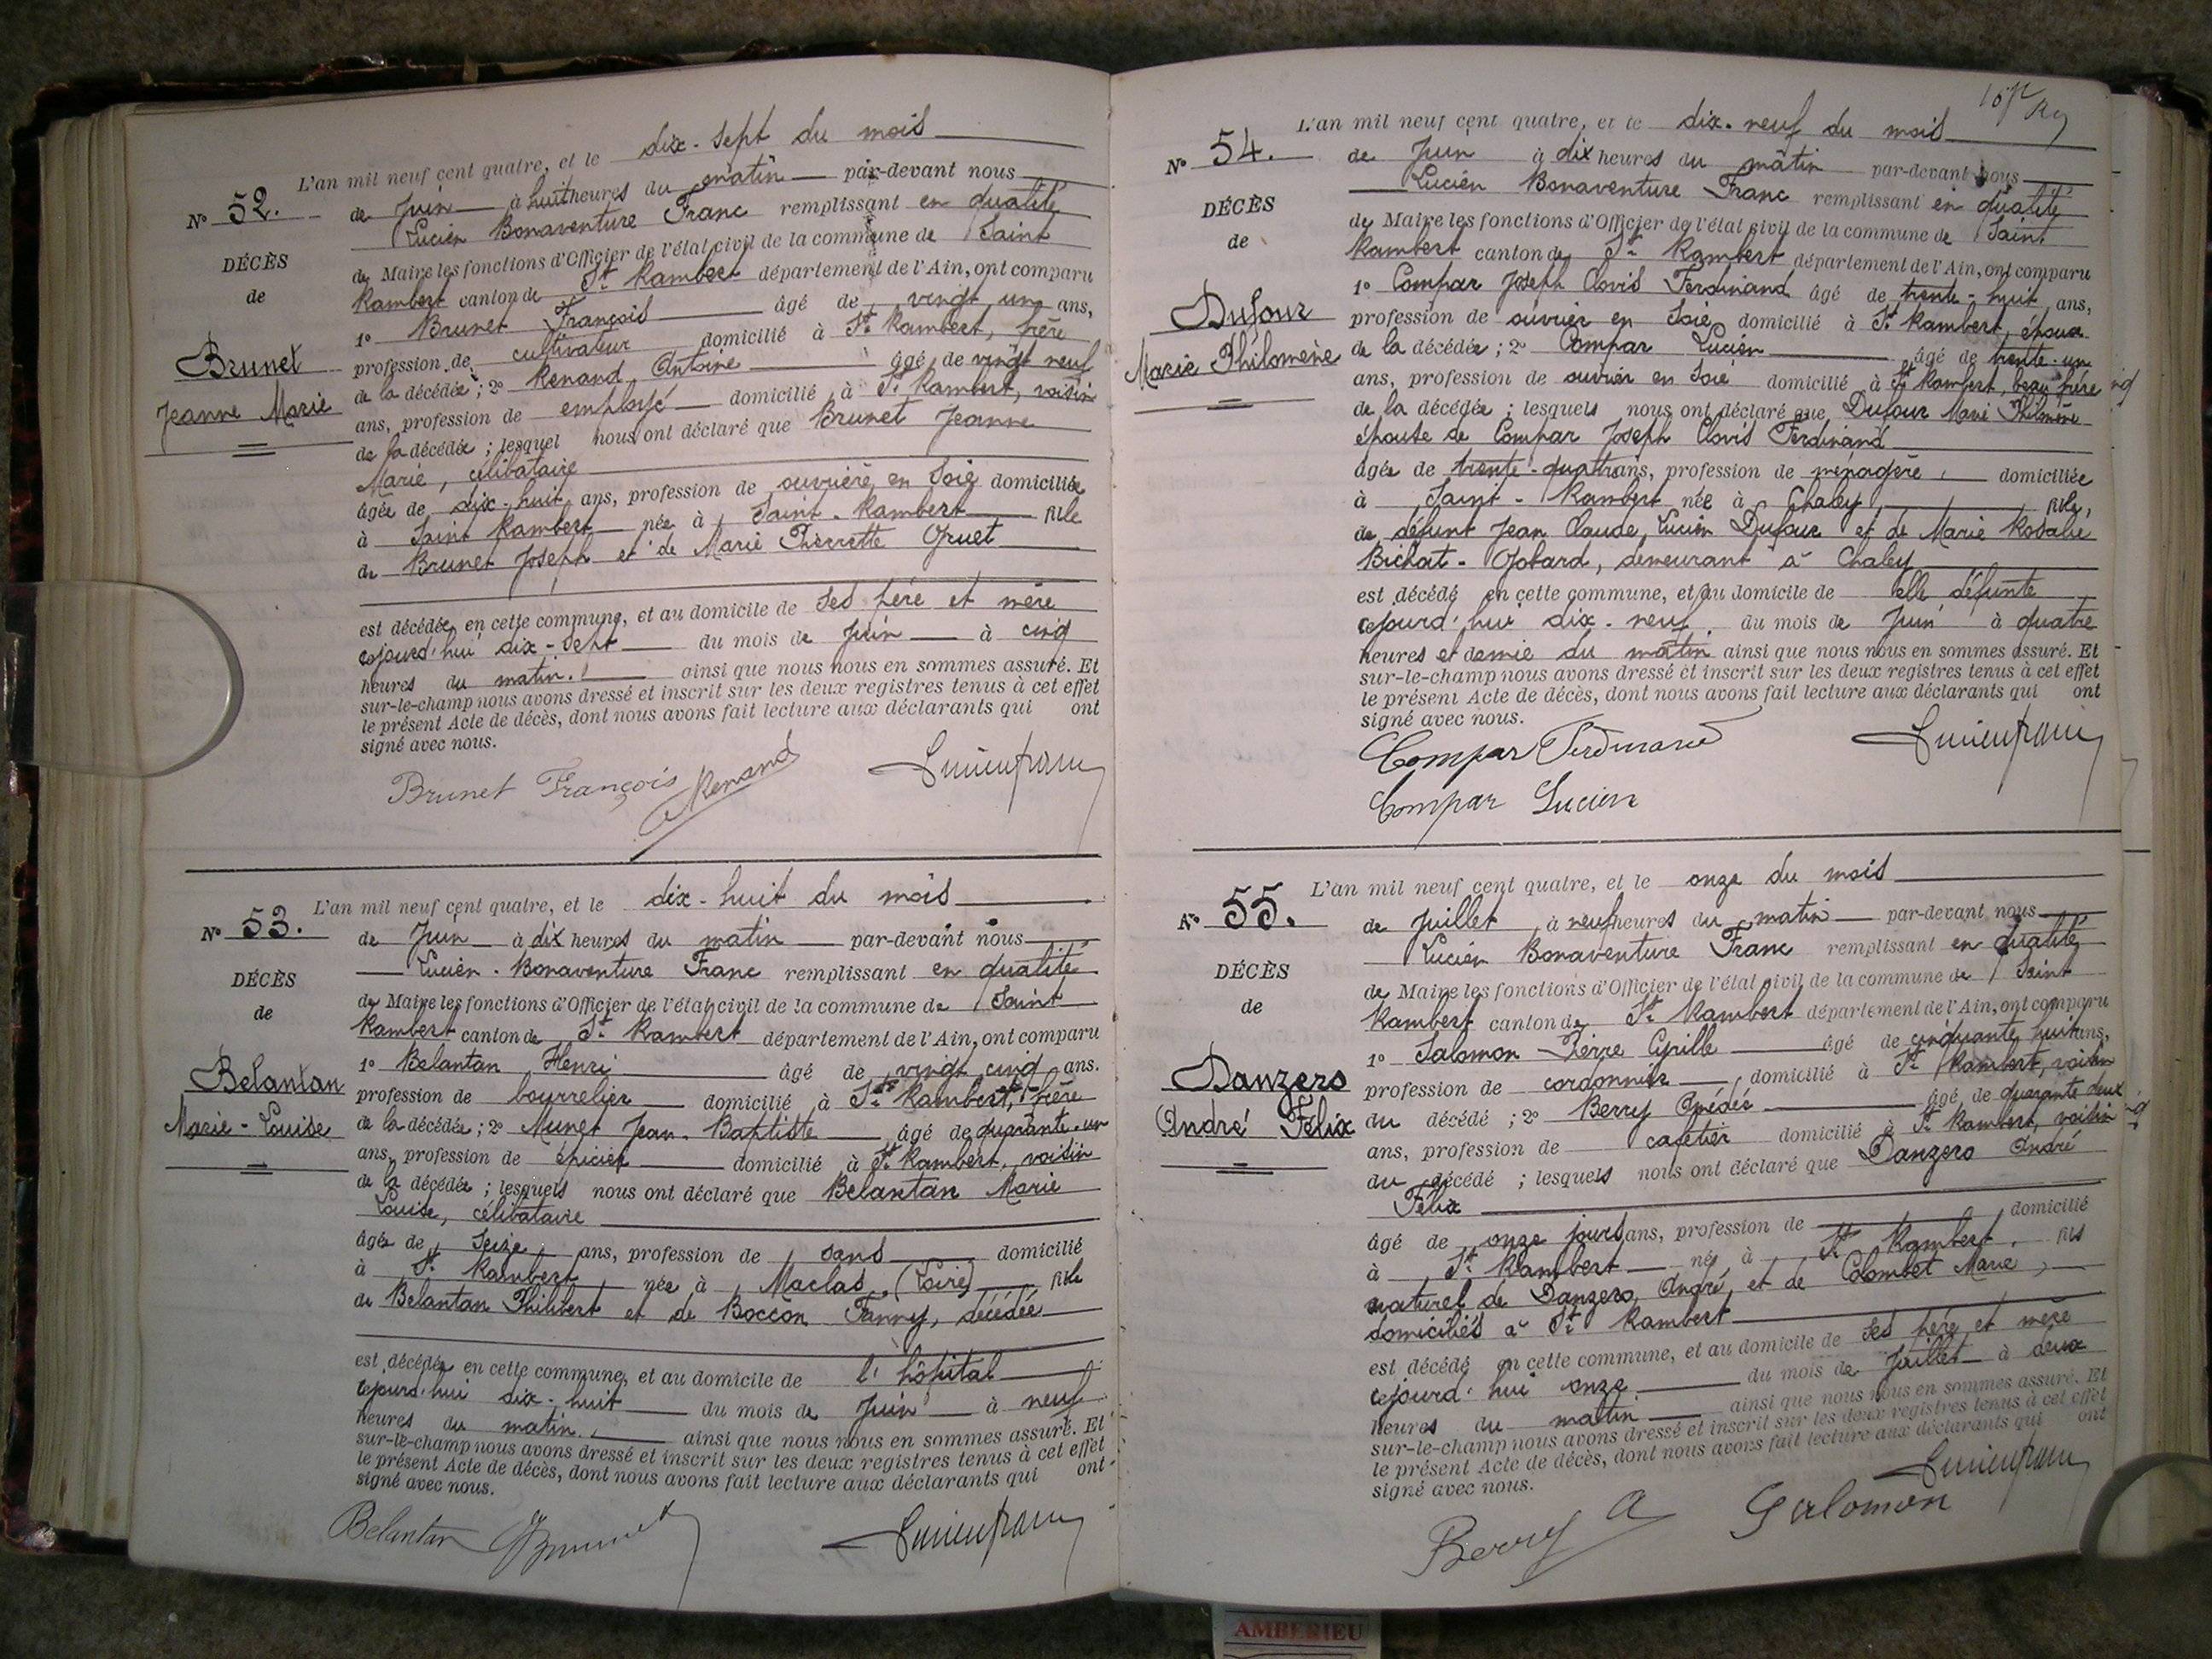 L'an mil neuf cent quatre, et le dix-sept du mois
No 52.
de Juin à huit heures du matin par-devant nous
Lucien Bonaventure Franc remplissant en qualité
DÉCÈS
de Maire les fonctions d'Officier de l'état civil de la commune de Saint
de
Rambert canton de St Rambert département de l'Ain, ont comparu
1o Brunet François âgé de vingt un ans,
Brunet
profession de cultivateur domicilié à St Rambert, frère
de la décédée ; 2o Renand Antoine âgé de vingt neuf
Jeanne Marie
ans, profession de employé domicilié à St Rambert, voisin
de la décédée ; lesquel nous ont déclaré que Brunet Jeanne
Marie, célibataire
âgée de dix-huit ans, profession de ouvrière en Soie domiciliée
à Saint Rambert née à Saint-Rambert fille
de Brunet Joseph et de Marie Pierrette Gruet
est décédée en cette commune, et au domicile de ses père et mère
cejourd'hui dix-sept du mois de Juin à cinq
heures du matin. ainsi que nous nous en sommes assuré. Et
sur-le-champ nous avons dressé et inscrit sur les deux registres tenus à cet effet
le présent Acte de décès, dont nous avons fait lecture aux déclarants qui ont
signé avec nous.
Brunet François Renand Lucien Franc
L'an mil neuf cent quatre, et le dix-huit du mois
No 53.
de Juin à dix heures du matin par-devant nous
Lucien-Bonaventure Franc remplissant en qualité
DÉCÈS
de Maire les fonctions d'Officier de l'état civil de la commune de Saint
de
Rambert canton de St Rambert département de l'Ain, ont comparu
1o Belantan Henri âgé de vingt cinq ans.
Belantan
profession de bourrelier domicilié à St Rambert, frère
Marie-Louise
de la décédée ; 2o Munet Jean-Baptiste âgé de quarante-un
ans, profession de épicier domicilié à St Rambert, voisin
de la décédée ; lesquels nous ont déclaré que Belantan Marie
Louise, célibataire
âgée de seize ans, profession de sans domicilié
à St Rambert née à Maclas, (Loire) fille
de Belantan Philibert et de Boccon Fanny, décédée
est décédée en cette commune, et au domicile de l'hôpital
cejourd'hui dix-huit du mois de Juin à neuf
heures du matin. ainsi que nous nous en sommes assuré. Et
sur-le-champ nous avons dressé et inscrit sur les deux registres tenus à cet effet
le présent Acte de décès, dont nous avons fait lecture aux déclarants qui ont
signé avec nous.
Belantan Lucien Franc
L'an mil neuf cent quatre, et le dix-neuf du mois
No 54.
de Juin à dix heures du matin par-devant nous
Lucien Bonaventure Franc remplissant en qualité
DÉCÈS
de Maire les fonctions d'Officier de l'état civil de la commune de Saint
de
Rambert canton de St Rambert département de l'Ain, ont comparu
1o Compar Joseph Clovis Ferdinand âgé de trente-huit ans,
Dufour
profession de ouvrier en Soie domicilié à St Rambert, époux
Marie Philomène
de la décédée ; 2o Compar Lucien âgé de trente-un
ans, profession de ouvrier en Soie domicilié à St Rambert, beau frère
de la décédée ; lesquels nous ont déclaré que Dufour Marie Philomène
épouse de Compar Joseph Clovis Ferdinand
âgée de trente-quatre ans, profession de ménagère, domiciliée
à Saint-Rambert née à Chaley, fille,
de défunt Jean Claude, Lucien Dufour et de Marie Rosalie
Bichat-Gobard, demeurant à Chaley
est décédé en cette commune, et au domicile de elle défunte
cejourd'hui dix-neuf. du mois de Juin à quatre
heures et demie du matin ainsi que nous nous en sommes assuré. Et
sur-le-champ nous avons dressé et inscrit sur les deux registres tenus à cet effet
le présent Acte de décès, dont nous avons fait lecture aux déclarants qui ont
signé avec nous.
Compar Ferdinand Lucien Franc
Compar Lucien
L'an mil neuf cent quatre, et le onze du mois
No 55.
de Juillet à neuf heures du matin par-devant nous
Lucien Bonaventure Franc remplissant en qualité
DÉCÈS
de Maire les fonctions d'Officier de l'état civil de la commune de Saint
de
Rambert canton de St Rambert département de l'Ain, ont comparu
1o Salomon Pierre Cyrille âgé de cinquante huit ans,
Danzero
profession de cordonnier, domicilié à St Rambert, voisin
André Félix
du décédé ; 2o Berry Amédée âgé de quarante deux
ans, profession de cafetier domicilié à St Rambert, voisin
du décédé ; lesquels nous ont déclaré que Danzero André
Félix
âgé de onze jours ans, profession de domicilié
à St Rambert né à St Rambert, fils
naturel de Danzero, André, et de Colombet Marie,
domiciliés à St Rambert
est décédé en cette commune, et au domicile de ses père et mère
cejourd'hui onze du mois de Juillet à deux
heures du matin ainsi que nous nous en sommes assuré. Et
sur-le-champ nous avons dressé et inscrit sur les deux registres tenus à cet effet
le présent Acte de décès, dont nous avons fait lecture aux déclarants qui ont
signé avec nous.
Lucien Franc
Berry A Salomon
AMBERIEU